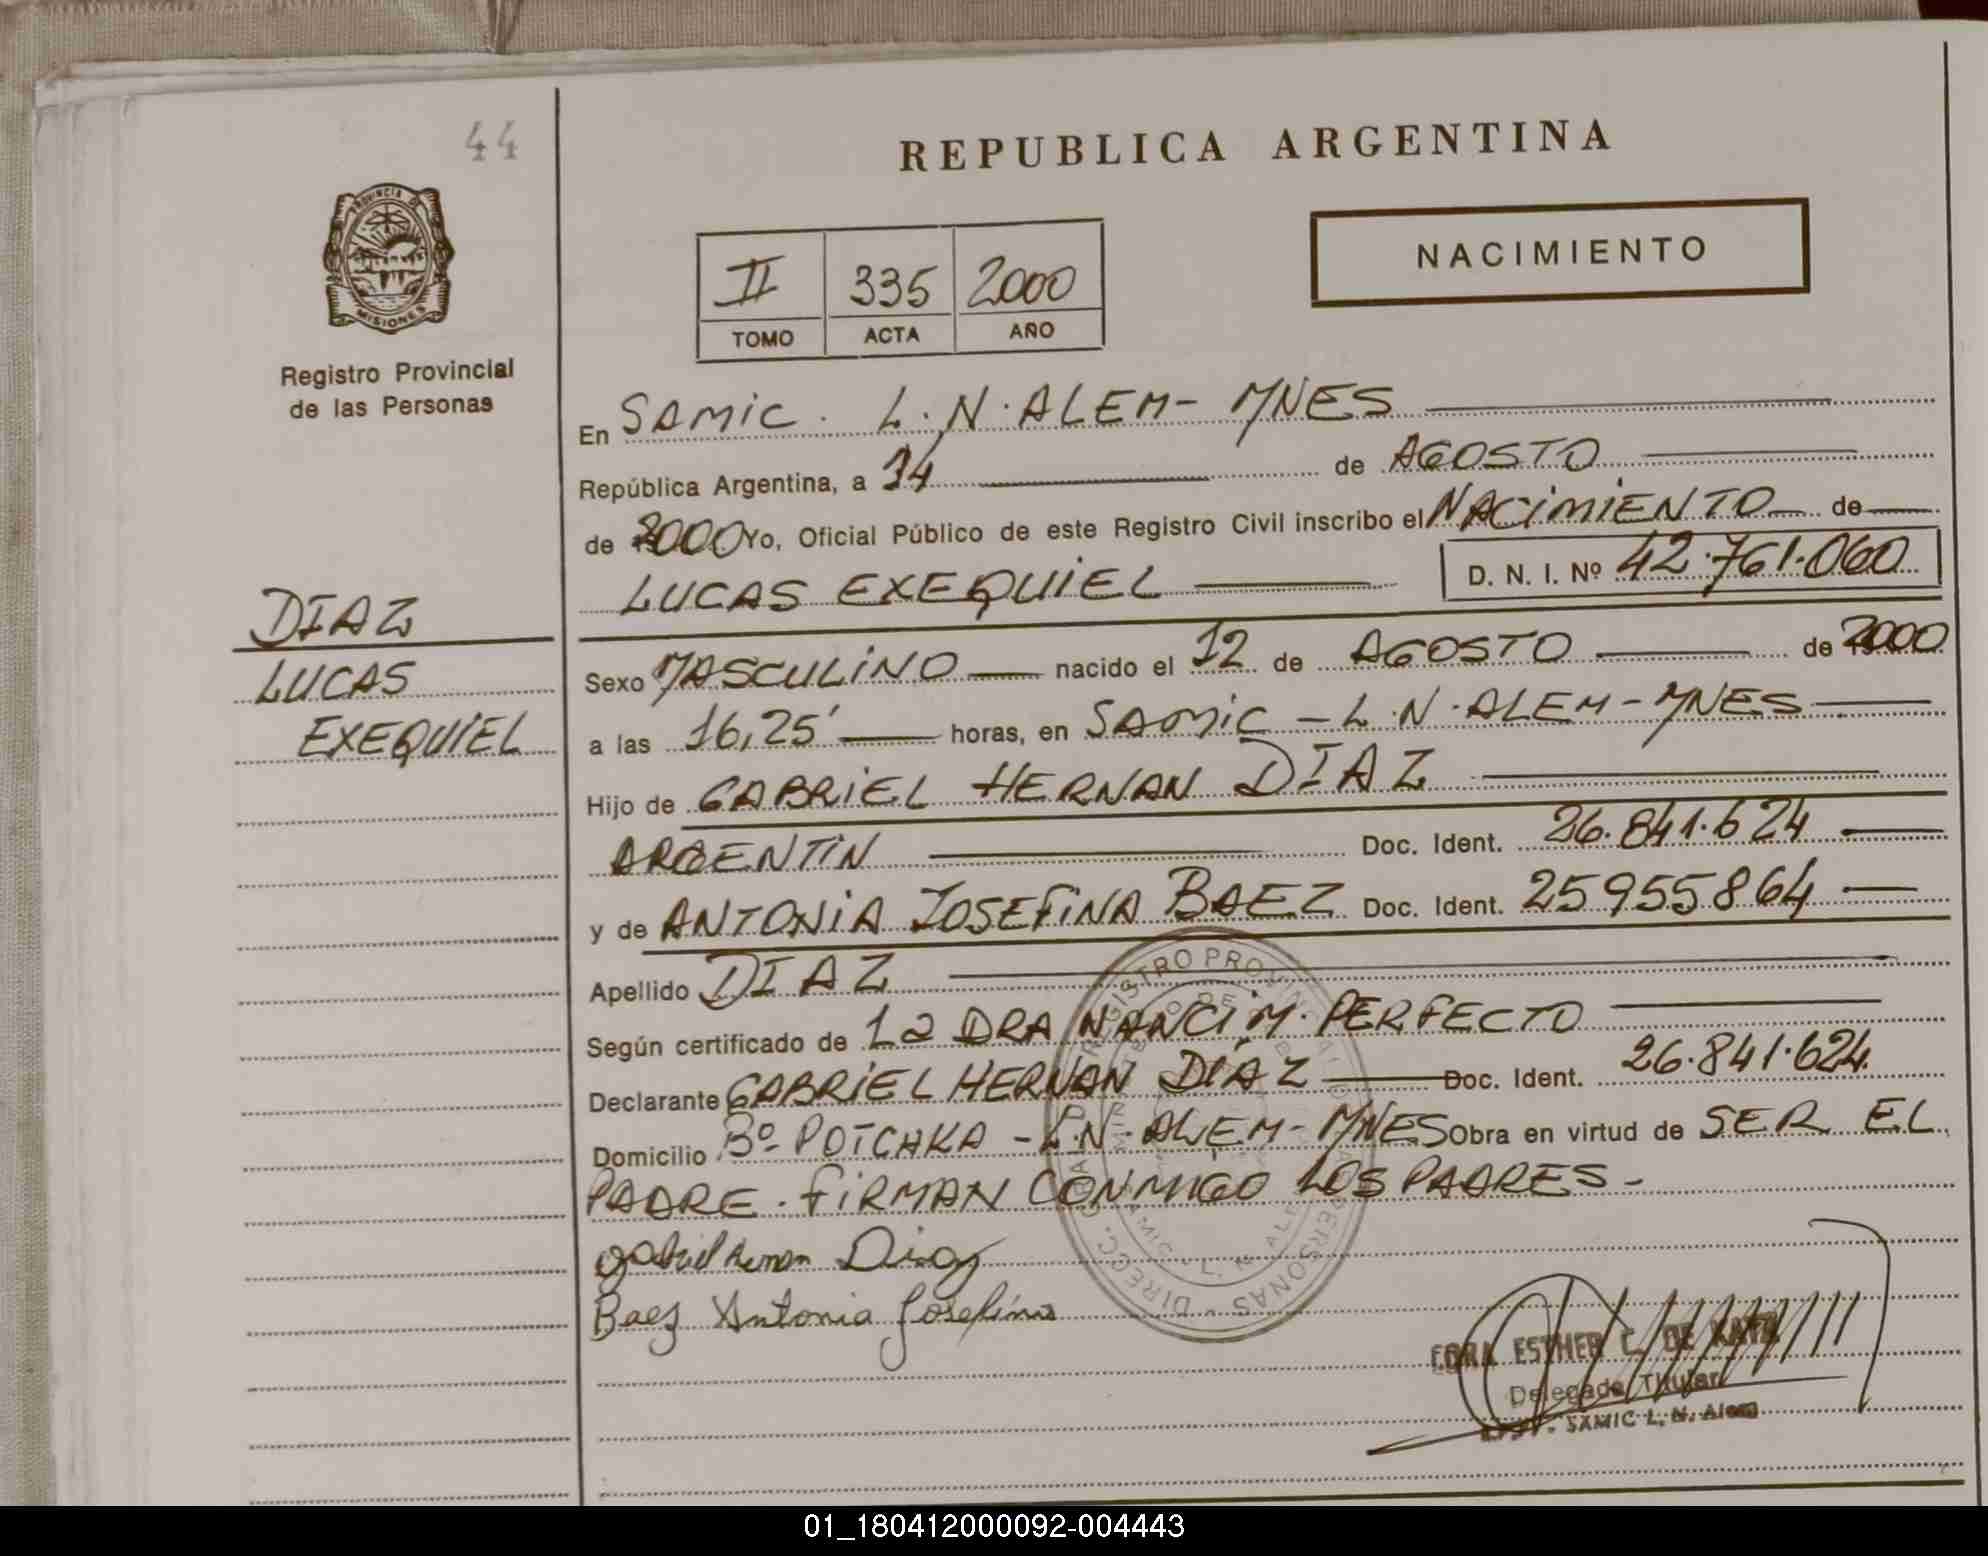 44
REPUBLICA ARGENTINA
PROVINCIA DE
MISIONES
Registro Provincial
de las Personas
II 335 2000
TOMO ACTA AÑO
NACIMIENTO
En SAMIC. L.N. ALEM - MNES
República Argentina, a 14 de AGOSTO
de 2000 Yo, Oficial Público de este Registro Civil inscribo el NACIMIENTO de
LUCAS EXEQUIEL D. N. I. Nº 42.761.060
DIAZ
LUCAS
EXEQUIEL
Sexo MASCULINO nacido el 12 de AGOSTO de 2000
a las 16,25' horas, en SAMIC - L.N. ALEM - MNES
Hijo de GABRIEL HERNAN DIAZ
ARGENTIN Doc. Ident. 26.841.624
y de ANTONIA JOSEFINA BAEZ Doc. Ident. 25955864
Apellido DIAZ
Según certificado de La DRA NANCI M. PERFECTO
Declarante GABRIEL HERNAN DIAZ Doc. Ident. 26.841.624
Domicilio Bº POTCHKA - L.N. ALEM - MNES Obra en virtud de SER EL
PADRE. FIRMAN CONMIGO LOS PADRES -
gabriel hernan Diaz
Baez Antonia Josefina
ESTHER C. DE
Delegada Titular
SAMIC L. N. Alem
01_180412000092-004443